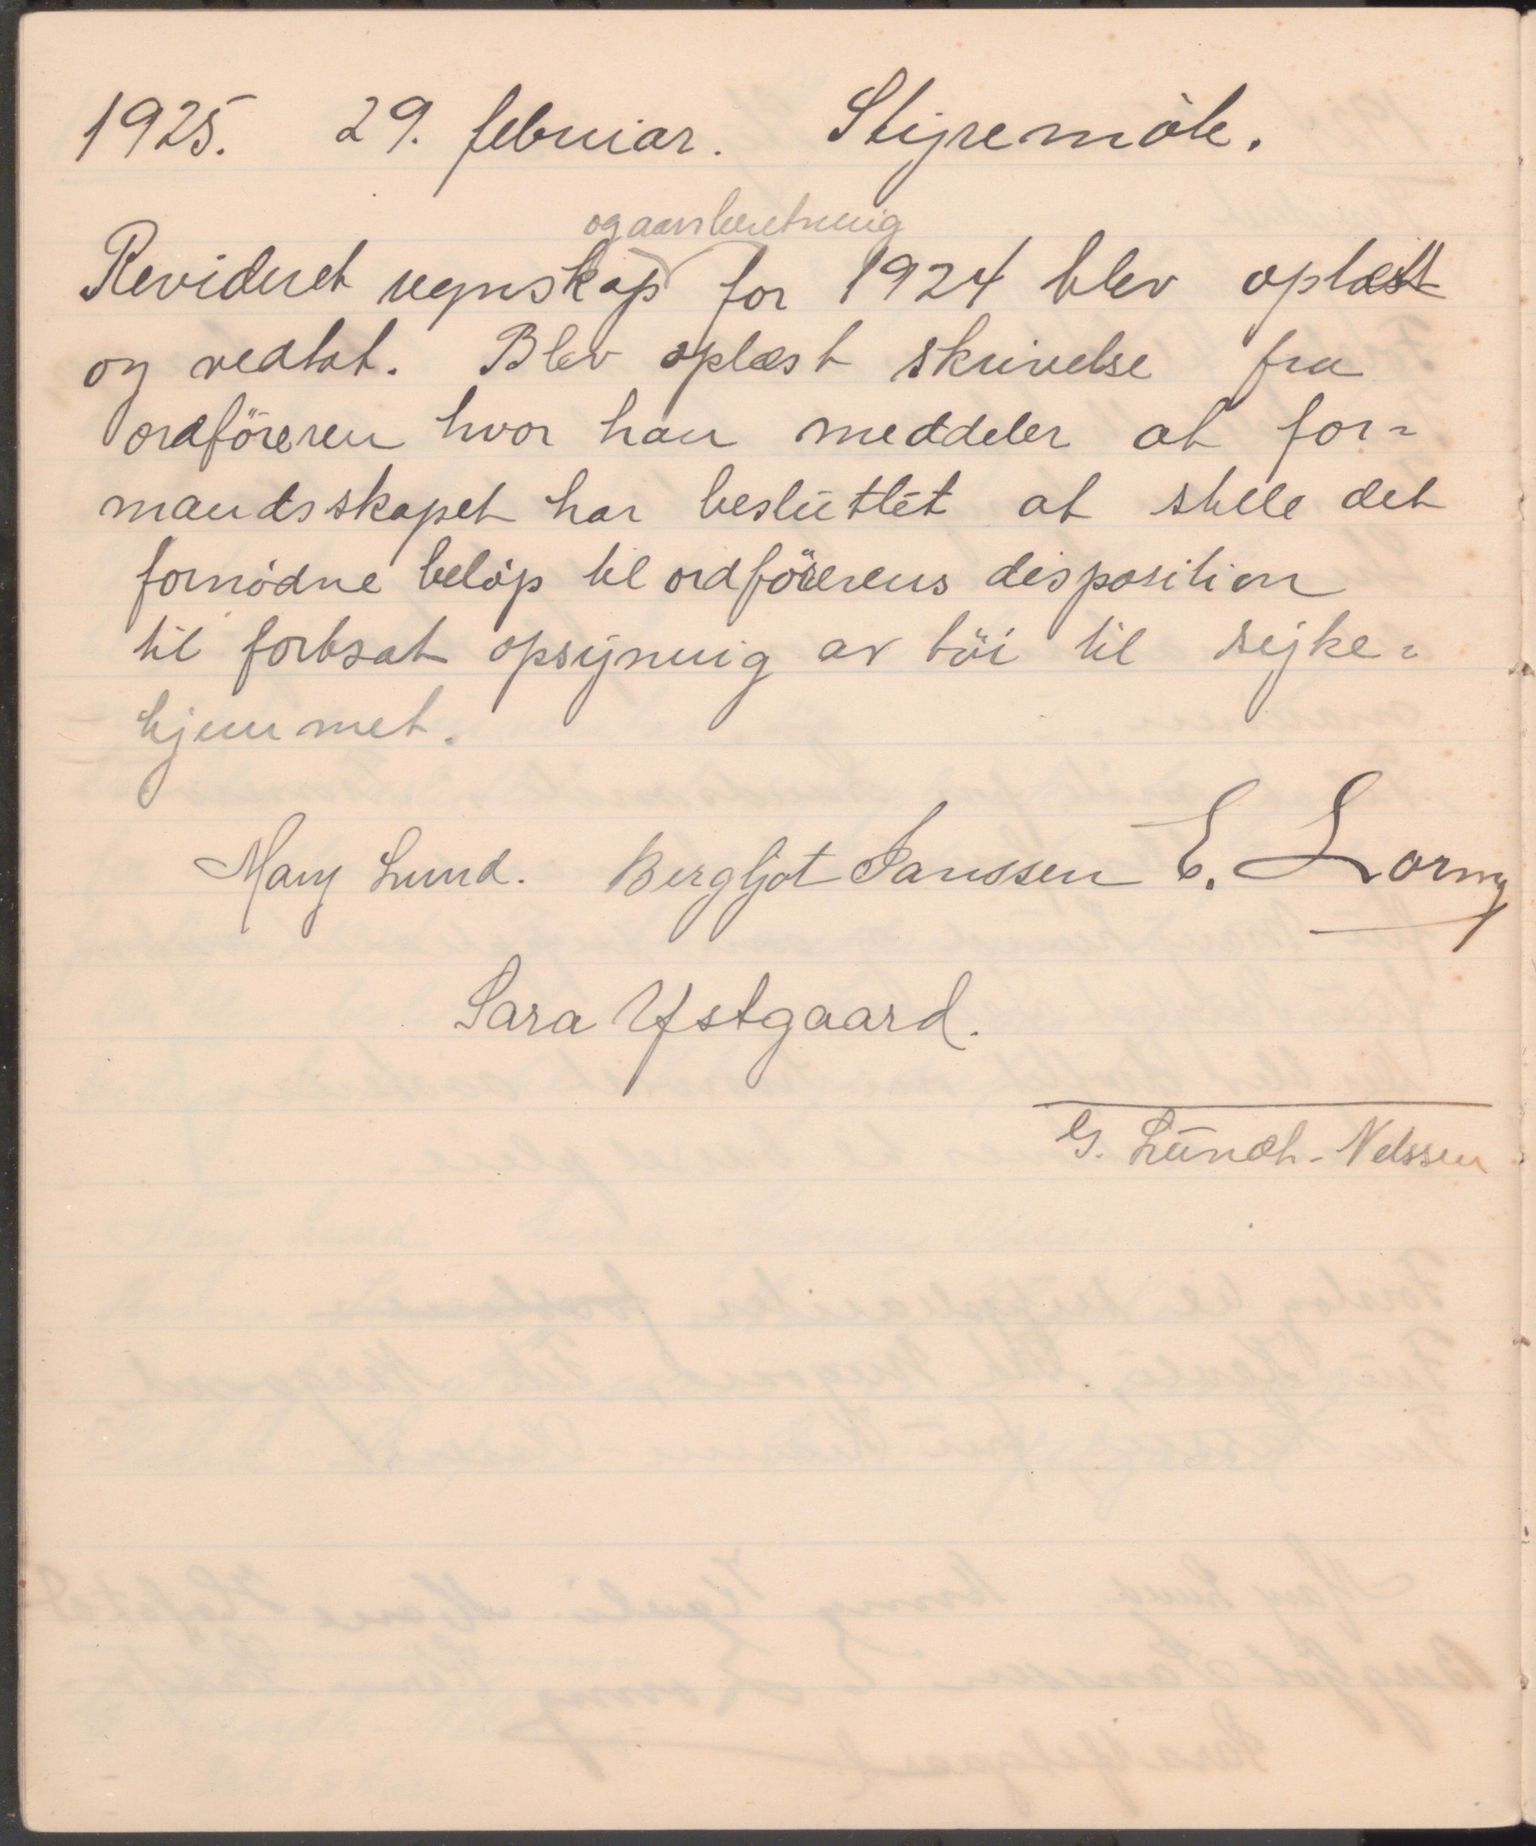 1925. 29. februar. Styremöte.
og aarsberetning
Revideret regnskap for 1924 blev oplæst
og vedtat. Blev oplæst skrivelse fra
ordföreren hvor han meddeler at for=
mandsskapet har besluttet at stille det
fornödne belöp til ordförerens disposition
til fortsat opsyning av töi til syke=
hjemmet.
Mary Lund. Bergljot Janssen E. Lorny
Sara Ystgaard.
G. Lundh-Nelssen